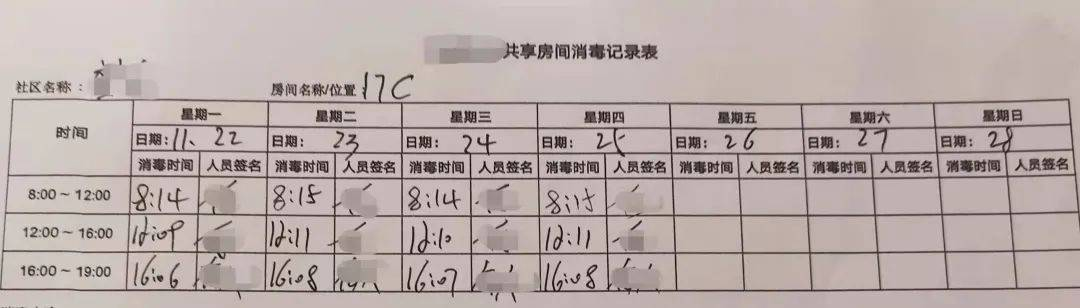 共享房间消毒记录表
社区名称： 房间名称/位置 17C
时间 星期一 星期二 星期三 星期四 星期五 星期六 星期日
日期: 11、22 日期: 23 日期: 24 日期: 25 日期: 26 日期: 27 日期: 28
消毒时间 人员签名 消毒时间 人员签名 消毒时间 人员签名 消毒时间 人员签名 消毒时间 人员签名 消毒时间 人员签名 消毒时间 人员签名
8:00～12:00 8:14 8:15 8:14 8:15
12:00～16:00 12:09 12:11 12:10 12:11
16:00～19:00 16:06 16:08 16:07 16:08